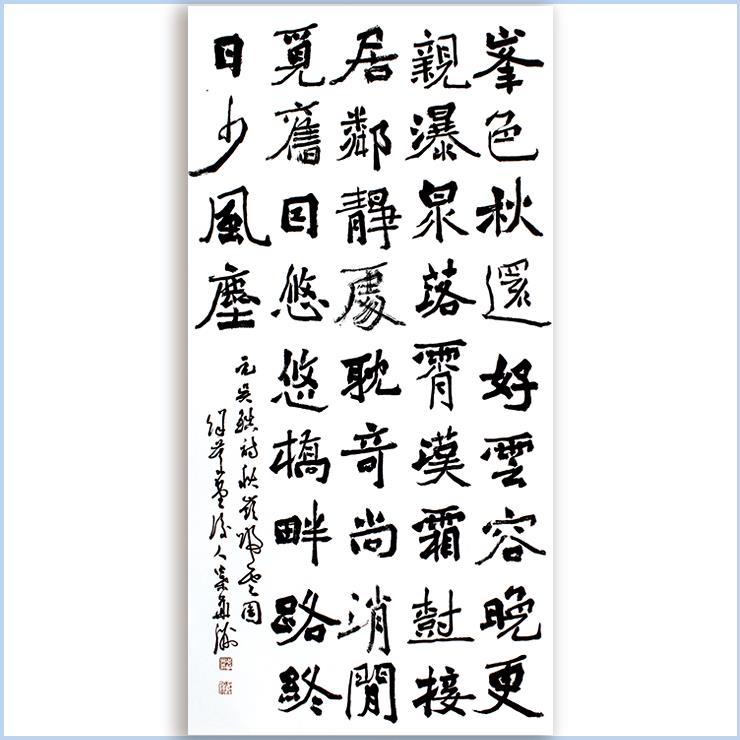 峯色秋還好雲容晚更
親瀑泉落霄漢霜樹接
居鄰靜處耽奇尚消閒
覓舊囙悠悠橋畔路終
日少風塵
元吳鎮詩秋嶺歸雲圖